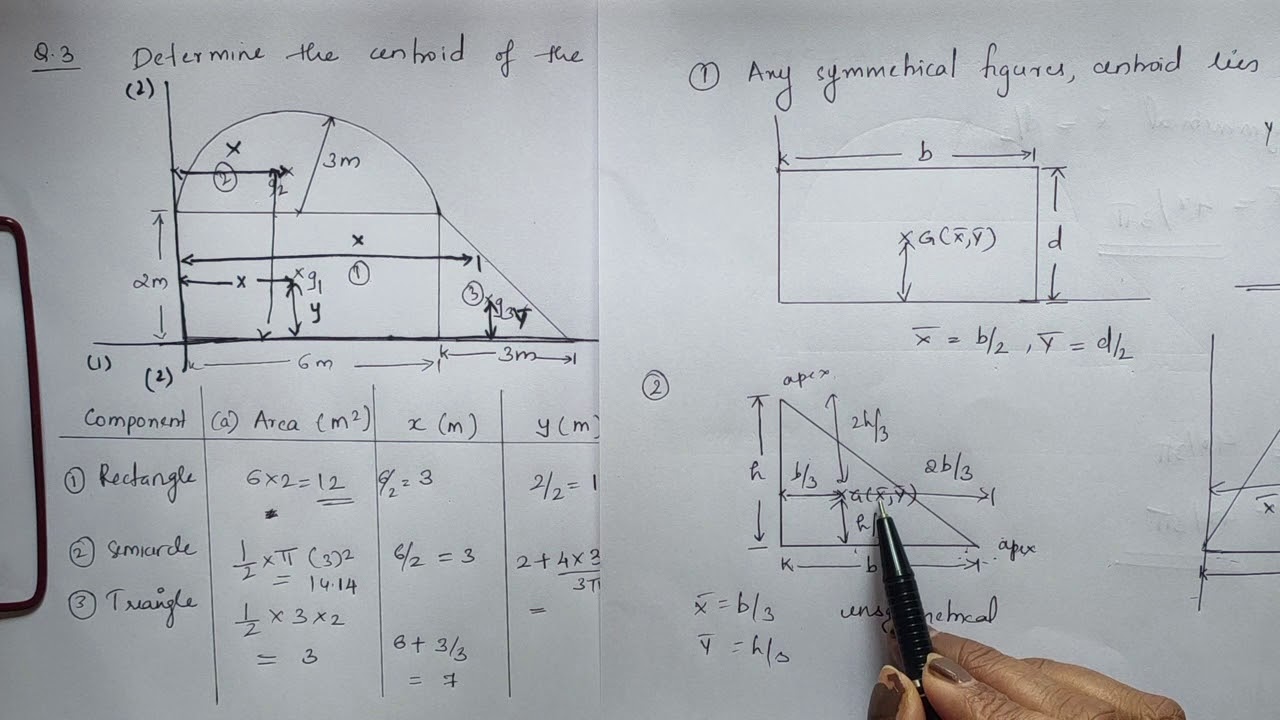 Q.3 Determine the centroid of the
(2)
x
②
g2
3m
2m
x
①
x
g1
y
③
g3 y
(1)
(2)
6m
3m
Component
(a) Area (m²)
x (m)
y (m)
① Rectangle
6×2 = 12
6/2 = 3
2/2 = 1
② Semicircle
1/2 × π (3)2
= 14.14
6/2 = 3
2 + 4×3/3π
=
③ Triangle
1/2 × 3 × 2
= 3
6 + 3/3
= 7
① Any symmetrical figures, centroid lies
b
G(x̄,ȳ)
d
x̄ = b/2, ȳ = d/2
②
apex
2h/3
h
b/3
2b/3
G(x̄,ȳ)
h/
apex
b
x̄ = b/3
ȳ = h/3
y
x̄